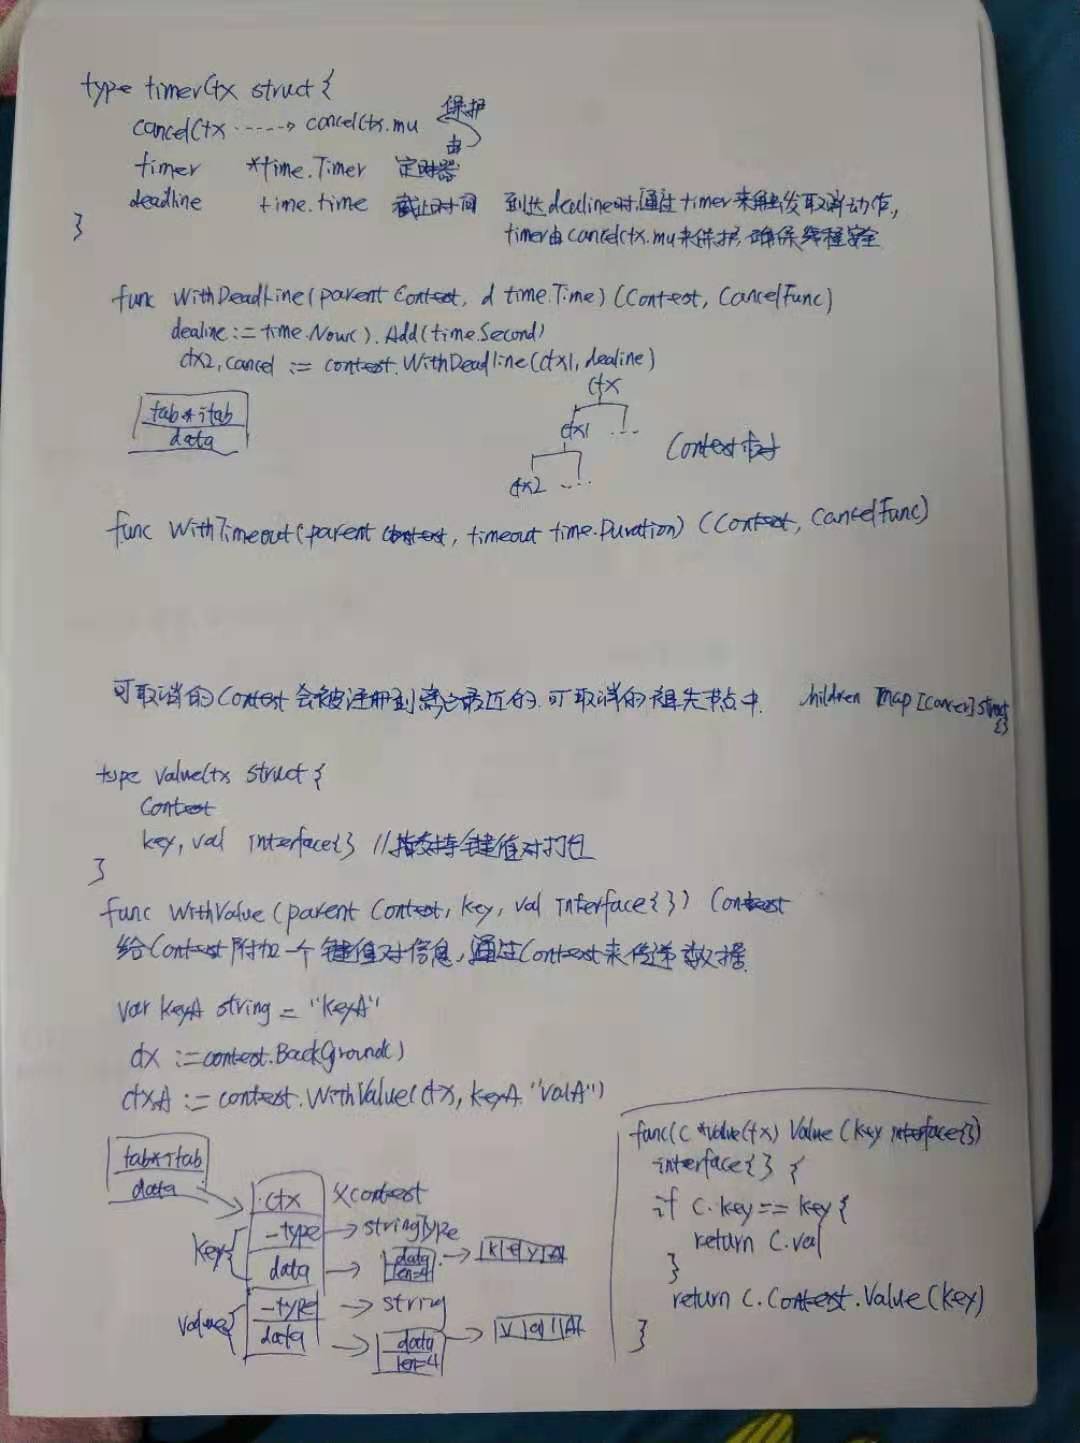 type timerCtx struct {
cancelCtx -----> cancelCtx.mu 保护
由
timer *time.Timer 定时器
deadline time.time 截止时间 到达dealine时,通过timer来触发取消动作,
} timer由cancelCtx.mu来保护,确保线程安全
func WithDeadLine(parent Context, d time.Time) (Context, CancelFunc)
dealine := time.Now().Add(time.Second)
ctx2, cancel := context.WithDeadline(ctx1, dealine)
ctx
tab *itab
data
ctx1 ...
Context树
ctx2 ...
func WithTimeout(parent Context, timeout time.Duration) (Context, CancelFunc)
可取消的Context会被注册到离之最近的.可取消的祖先节点中. children map[cancer]struct
{}
type valueCtx struct {
Context
key, val interface{} // 支持键值对打包
}
func WithValue (parent Context, key, val interface{}) Context
给Context附加一个键值对信息,通过Context来传递数据.
var keyA string = "keyA"
ctx := context.BackGround()
ctxA := context.WithValue(ctx, keyA, "valA")
tab *itab
data
ctx *context
key { _type → stringType
data → data len=4 → |k|e|y|A|
value { _type → string
data → data len=4 → |v|a|l|A|
func (C *valueCtx) Value (key interface{})
interface{} {
if C.key == key {
return C.val
}
return C.Context.Value(key)
}